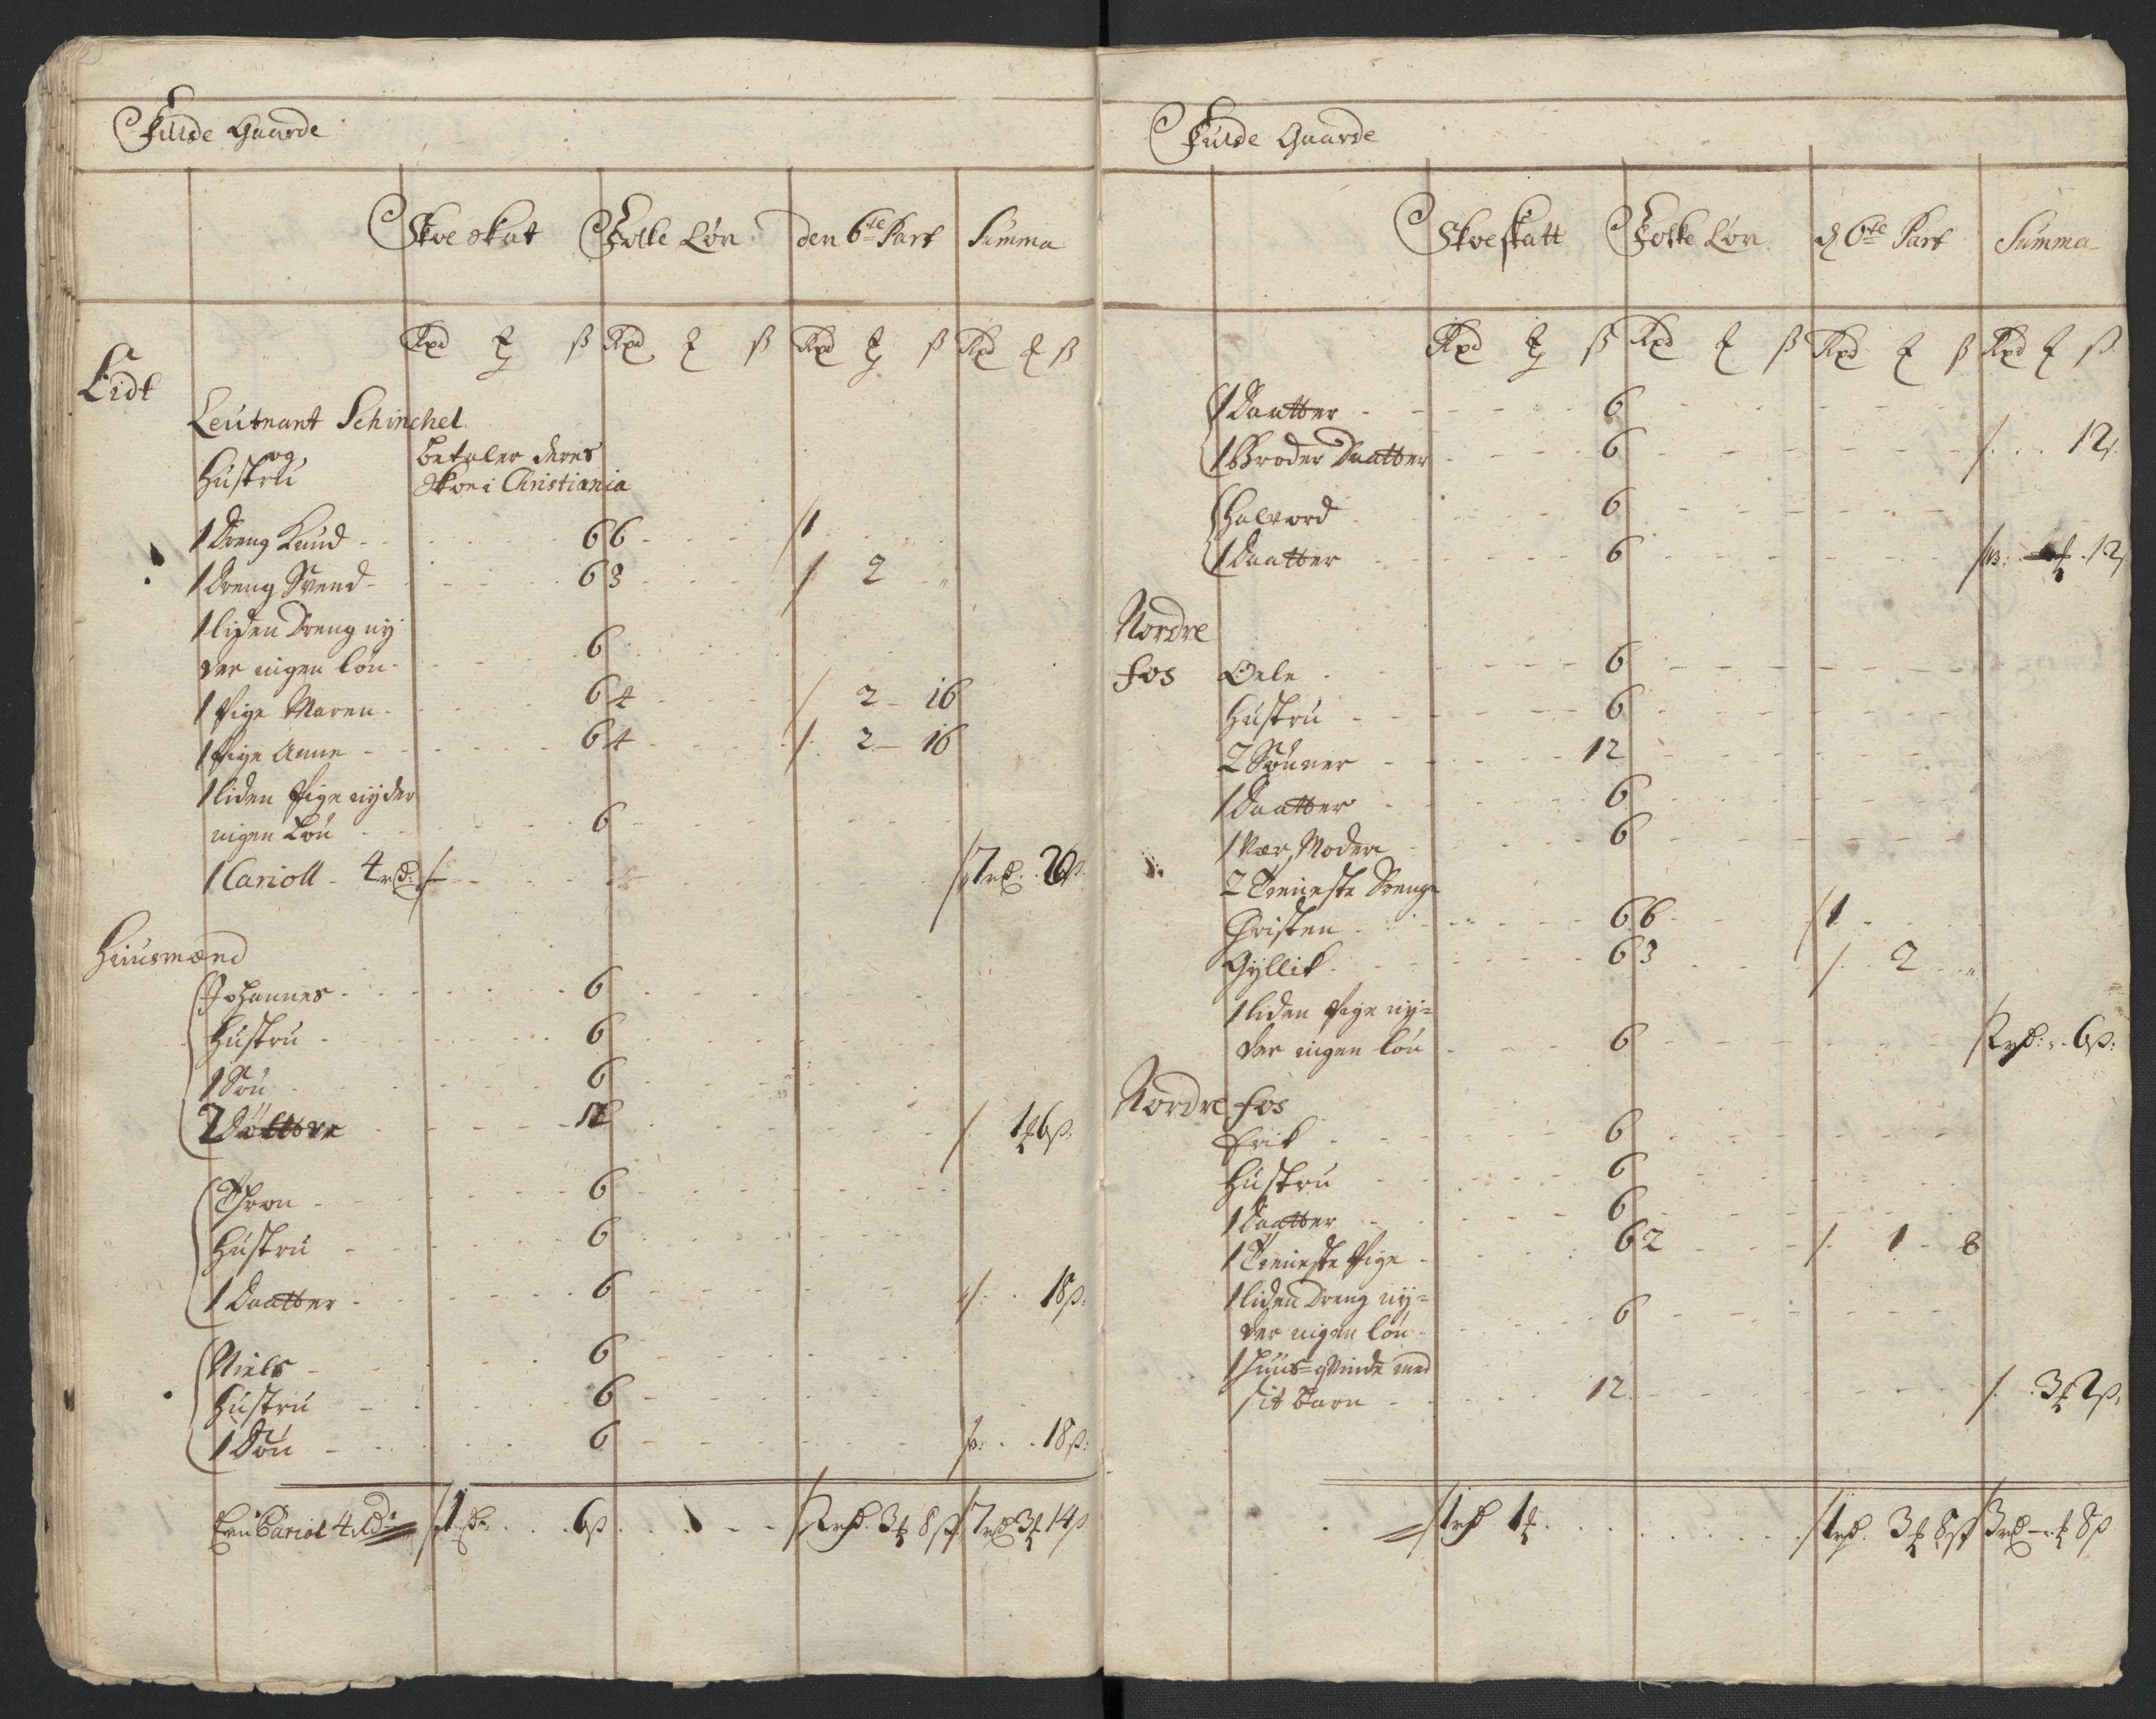 Fulde Gaarde
Skoe skat Folke Løn den 6te Part Summa
Rxd ß Rxd ß Rxd ß Rxd ß
Lidt
Leutnant Schinchel
og betaler deres
Hustru Skoe i Christiania
1 Dreng Knud - 6 6 - /1
1 Dreng Svend - 6 3 - / 2 "
1 liden Dreng ny
der ingen løn - 6
1 Pige Maren - 6 4 - / 2 - 16
1 Pige Anne - 6 4 - / 2 - 16
1 liden Pige nyder
ingen Løn - 6
1 Carioll - 4 rd: /7 rd. 20 ß
Huusmænd
Johannes - 6
Hustru - 6
1 Søn - 6
2 Døttre - 12 - / 1 6 ß.
Thron - 6
Hustru - 6
1 Daatter - 6 - /. 18 ß:
Niels - 6
Hustru - 6
1 Søn - 6 - 18 ß:
Een Cariol 4 Rd: /1 rd. 6 ß /2 rd. 3 8 ß /7 rd 3 14 ß
Fulde Gaarde
Skoe skatt Folke Løn d 6te Part Summa
Rxd ß Rxd ß Rxd ß Rxd ß
1 Daatter - 6
1 Broder Daatter - 6 - / 12
Halvord - 6
1 Daatter - 6 - 12
Nordre
Fos Oele - 6
Hustru - 6
2 Sønner - 12
1 Daatter - 6
1 Vær Moder - 6
2 Tieneste Drenge
Christen - 6 6 - /1
Gyllik - 6 3 - / 2 "
1 liden Pige ny=
der ingen løn - 6 - /2 rd: 6 ß:
Nordre Fos
Erik - 6
Hustru - 6
1 Daatter - 6
1 Tieneste Pige - 6 2 - / 1 - 8
1 liden Dreng ny=
der ingen løn - 6
1 Huus=qvinde med
sit Barn - 12 - / 3 2 ß.
/1 rd 1 /1 rd. 3 8 ß /3 rd - 8 ß